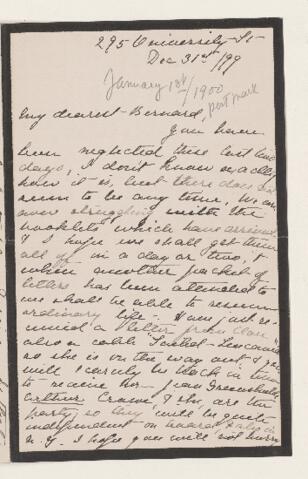 295 University St
Dec 31st/99
January 1st/1900
post mark
My dearest Bernard,
You have
been neglected this last few
days, I don't know exactly
how it is, but there does not
seem to be any time, We are
now struggling with the
booklets which have arrived
& I hope we shall get them
all off in a day or two, &
when another packet of
letters has been attended to
we shall be able to resume
ordinary life – I have just re-
ceived a letter from Clare
also a cable "Started
so she is on the way and I
will surely be back in time
to receive her – Jean
Arthur Crowe & she are the
party, so they will be quite
independent on board & also in
N.Y. I hope you will not hurry